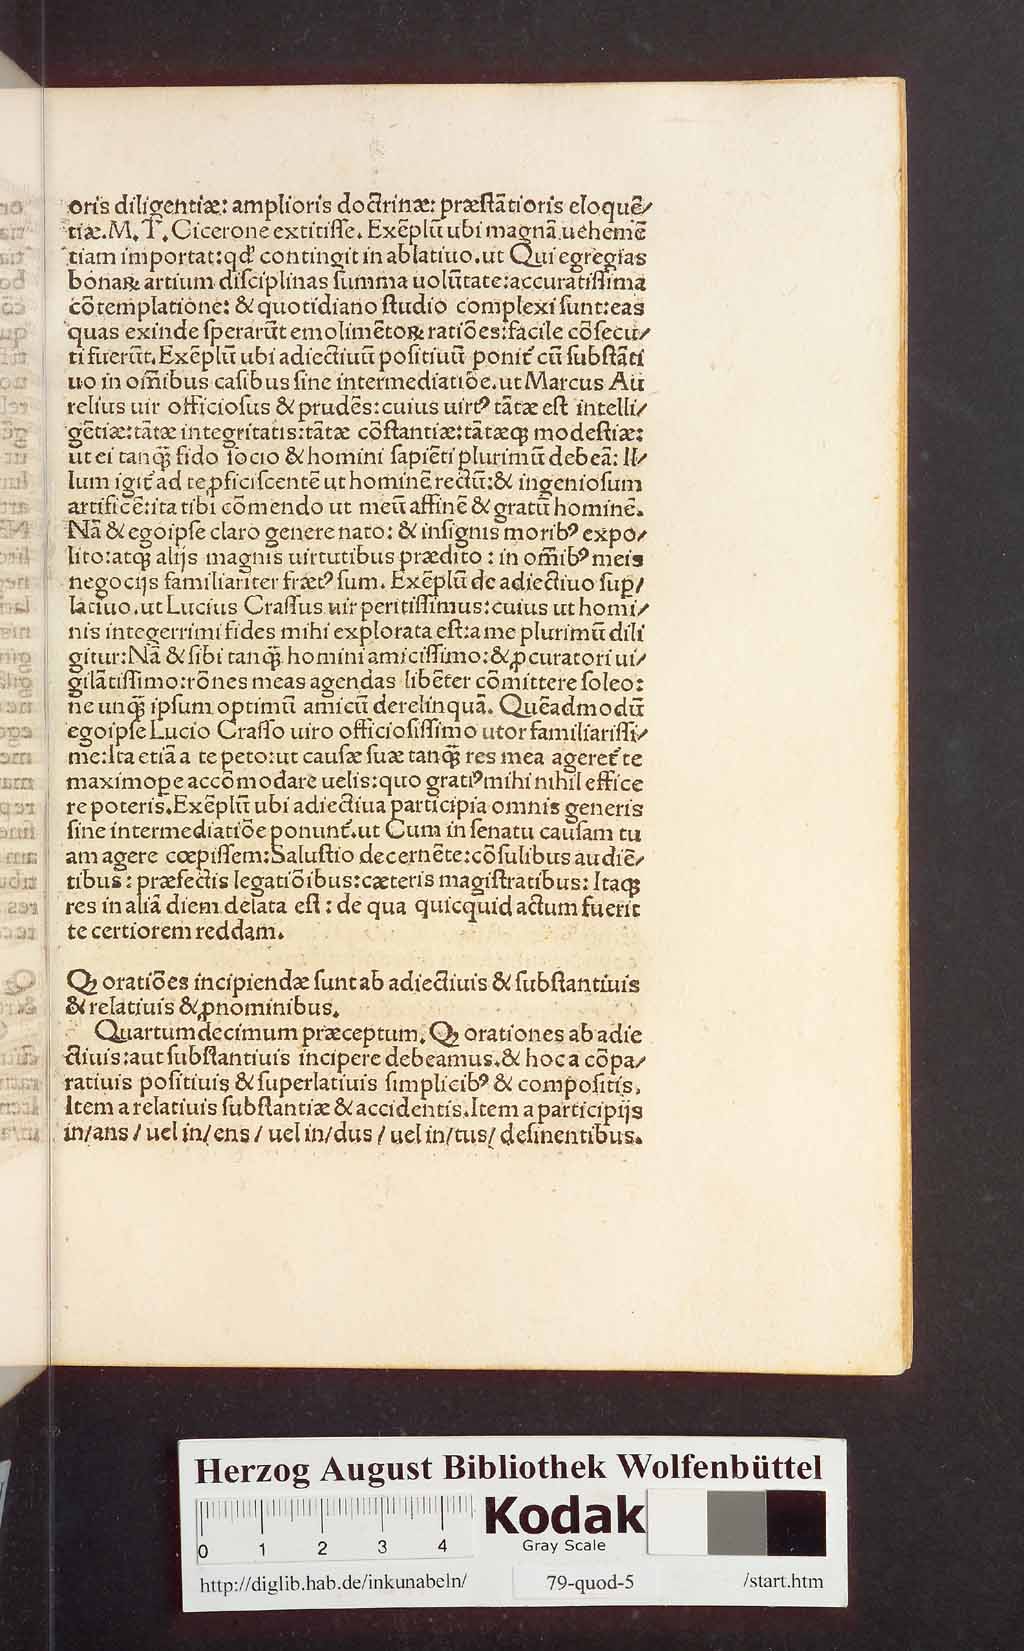 oris diligentiæ: amplioris doctrinæ: præſtātioris eloquē/
tiæ. M. T. Cicerone extitiſſe. Exēplū ubi magnā uehemē
tiam importat: qđ contingit in ablatiuo. ut Qui egregias
bonaꝝ artium diſciplinas ſumma uolūtate: accuratiſſima
cōtemplatione: & quotidiano ſtudio complexi ſunt: eas
quas exinde ſperarūt emolimētoꝝ ratiōes: facile cōſecu/
ti fuerūt. Exēplū ubi adiectiuū poſitiuū ponit̄ cū ſubſtāti
uo in om̄ibus caſibus ſine intermediatiōe. ut Marcus Au
relius uir officioſus & prudēs: cuius uirtꝰ tātæ eſt intelli/
gētiæ: tātæ integritatis: tātæ cōſtantiæ: tātæqꝫ modeſtiæ:
ut ei tanqꝫ̄ fido ſocio & homini ſapiēti plurimū debeā: Il/
lum igit̄ ad te ꝓficiſcentē ut hominē rectū: & ingenioſum
artificē: ita tibi cōmendo ut meū affinē & gratū hominē.
Nā & egoipſe claro genere nato: & inſignis moribꝰ expo/
lito: atqꝫ alijs magnis uirtutibus prædito: in om̄ibꝰ meis
negocijs familiariter frætꝰ ſum. Exēplū de adiectiuo ſuꝑ/
latiuo. ut Lucius Craſſus uir peritiſſimus: cuius ut homi/
nis integerrimi fides mihi explorata eſt: a me plurimū dili
gitur: Nā & ſibi tanqꝫ̄ homini amiciſſimo: & ꝓcuratori ui/
gilātiſſimo: rōnes meas agendas libēter cōmittere ſoleo:
ne unqꝫ̄ ipſum optimū amicū derelinquā. Quēadmodū
egoipſe Lucio Craſſo uiro officioſiſſimo utor familiariſſi/
me: Ita etiā a te peto: ut cauſæ ſuæ tanqꝫ̄ res mea ageret̄ te
maximoꝑe accōmodare uelis: quo gratiꝰ mihi nihil effice
re poteris. Exēplū ubi adiectiua participia omnis generis
ſine intermediatiōe ponunt̄. ut Cum in ſenatu cauſam tu
am agere cœpiſſem: Saluſtio decernēte: cōſulibus audiē/
tibus: præfectis legatiōibus: cæteris magiſtratibus: Itaqꝫ
res in aliā diem delata eſt: de qua quicquid actum fuerit
te certiorem reddam.
Qꝫ oratiōes incipiendæ ſunt ab adiectiuis & ſubſtantiuis
& relatiuis & ꝓnominibus.
Quartumdecimum præceptum. Qꝫ orationes ab adie
ctiuis: aut ſubſtantiuis incipere debeamus. & hoc a cōpa/
ratiuis poſitiuis & ſuperlatiuis ſimplicibꝰ & compoſitis,
Item a relatiuis ſubſtantiæ & accidentis. Item a participijs
in/ans / uel in/ens / uel in/dus / uel in/tus/ deſinentibus.
Herzog August Bibliothek Wolfenbüttel
0 1 2 3 4
Kodak
Gray Scale
http://diglib.hab.de/inkunabeln/ 79-quod-5 /start.htm